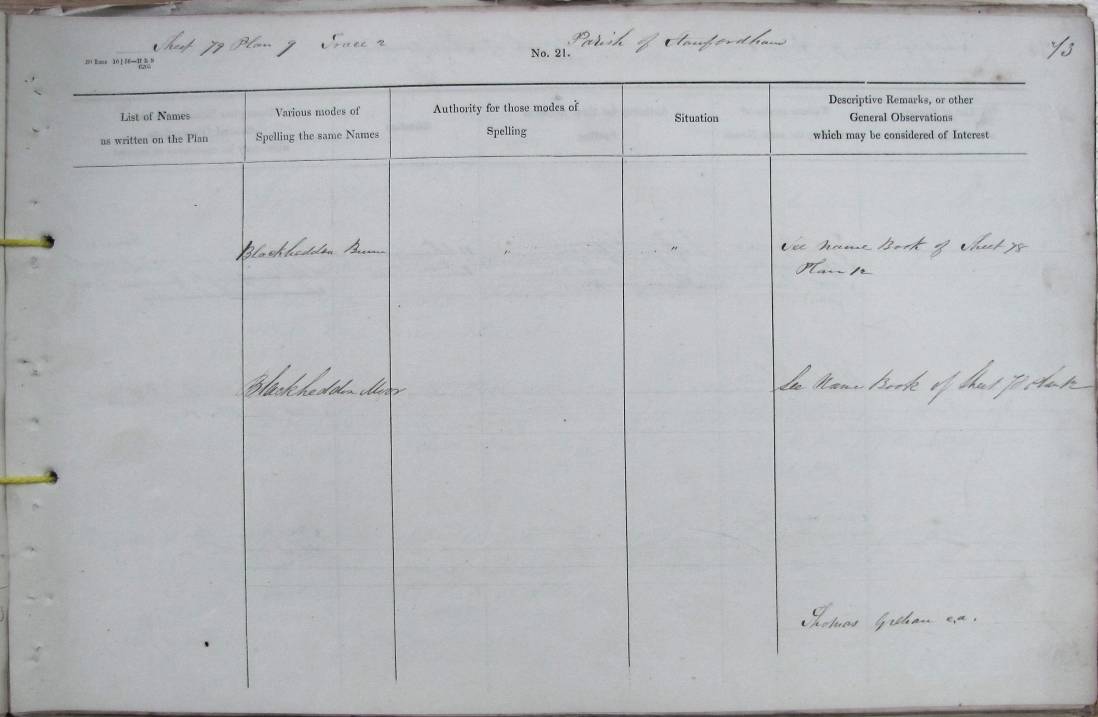 Sheet 79 Plan 9 Trace 2
No. 21.
Parish of Stamfordham
List of Names
as written on the Plan
Various modes of
Spelling the same Names
Authority for those modes of
Spelling
Situation
Descriptive Remarks, or other
General Observations
which may be considered of Interest
Blackheddon Burn
"
"
See Name Book of Sheet 78
Plan 12
Blackheddon Moor
See Name Book of Sheet
Thomas c.a.